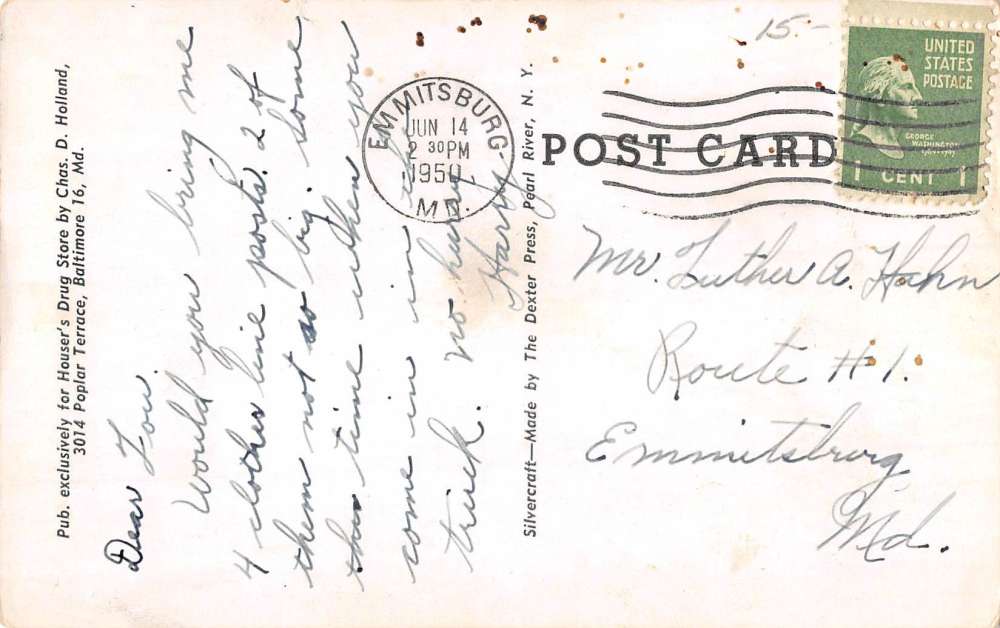 Pub. exclusively for Houser's Drug Store by Chas. D. Holland,
3014 Poplar Terrace, Baltimore 16, Md.
Dear Lou.
Would you bring me
4 clothes line posts. 2 of
them not so big. Some
time when you
come in in the
truck. no hurry
Harry.
Silvercraft—Made by The Dexter Press, Pearl River, N. Y.
15.-
EMMITSBURG
JUN 14
2 30 PM
1950
MD.
POST CARD
UNITED
STATES
POSTAGE
GEORGE
WASHINGTON
1 CENT 1
Mr. Luther A. Hahn
Route #1.
Emmitsburg
Md.